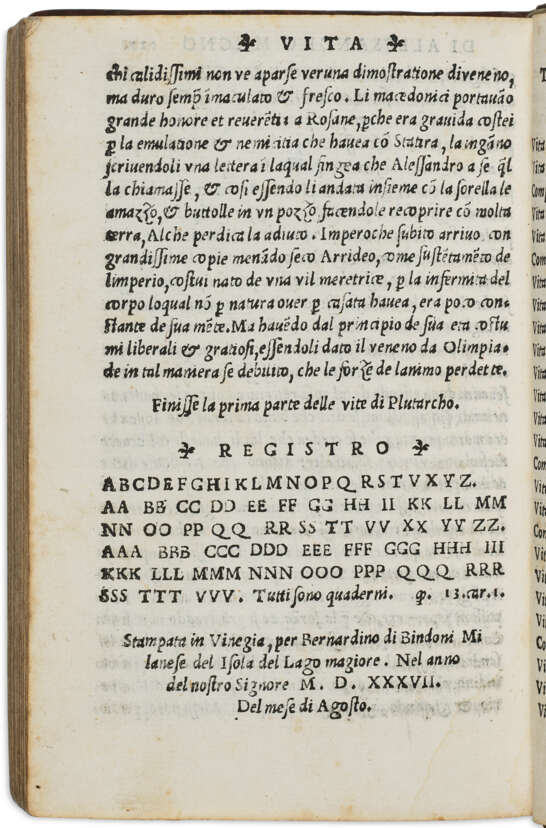 VITA
chi calidissimi non ve aparse veruna dimostratione di veneno,
ma duro semp̄ imaculato & fresco. Li macedonici portauão
grande honore et reuerẽti a a Rosane, p̱che era grauida costei
p̱ la emulatione & nemicitia che hauea cõ Statira, la ingãno
scriuendoli vna lettera i laqual fingea che Alessandro a se q̃l
la chiamasse, & cosi essendo li andata insieme cõ la sorella le
amazzo, & buttolle in vn pozzo facendole recoprire cõ molta
terra, Alche perdica la adiuto. Imperoche subito arriuo con
grandissime copie menãdo seco Arrideo, come sustẽtamẽto de
limperio, costui nato de vna vil meretrice, p̱ la infermita del
corpo loqual nõ p̱ natura ouer p̱ casata hauea, era poco con-
stante de sua mẽte. Ma hauẽdo dal principio de sua eta costu
mi liberali & gratiosi, essendoli dato il veneno da Olimpia-
de in tal maniera se debilito, che le forze de lanimo perdette.
Finisse la prima parte delle vite di Plutarcho.
REGISTRO
ABCDEFGHIKLMNOPQRSTVXYZ.
AA BB CC DD EE FF GG HH II KK LL MM
NN OO PP QQ RR SS TT VV XX YY ZZ.
AAA BBB CCC DDD EEE FFF GGG HHH III
KKK LLL MMM NNN OOO PPP QQQ RRR
SSS TTT VVV. Tutti sono quaderni. q. 13. car. 1.
Stampata in Vinegia, per Bernardino di Bindoni Mi
lanese del Isola del Lago magiore. Nel anno
del nostro Signore M. D. XXXVII.
Del mese di Agosto.